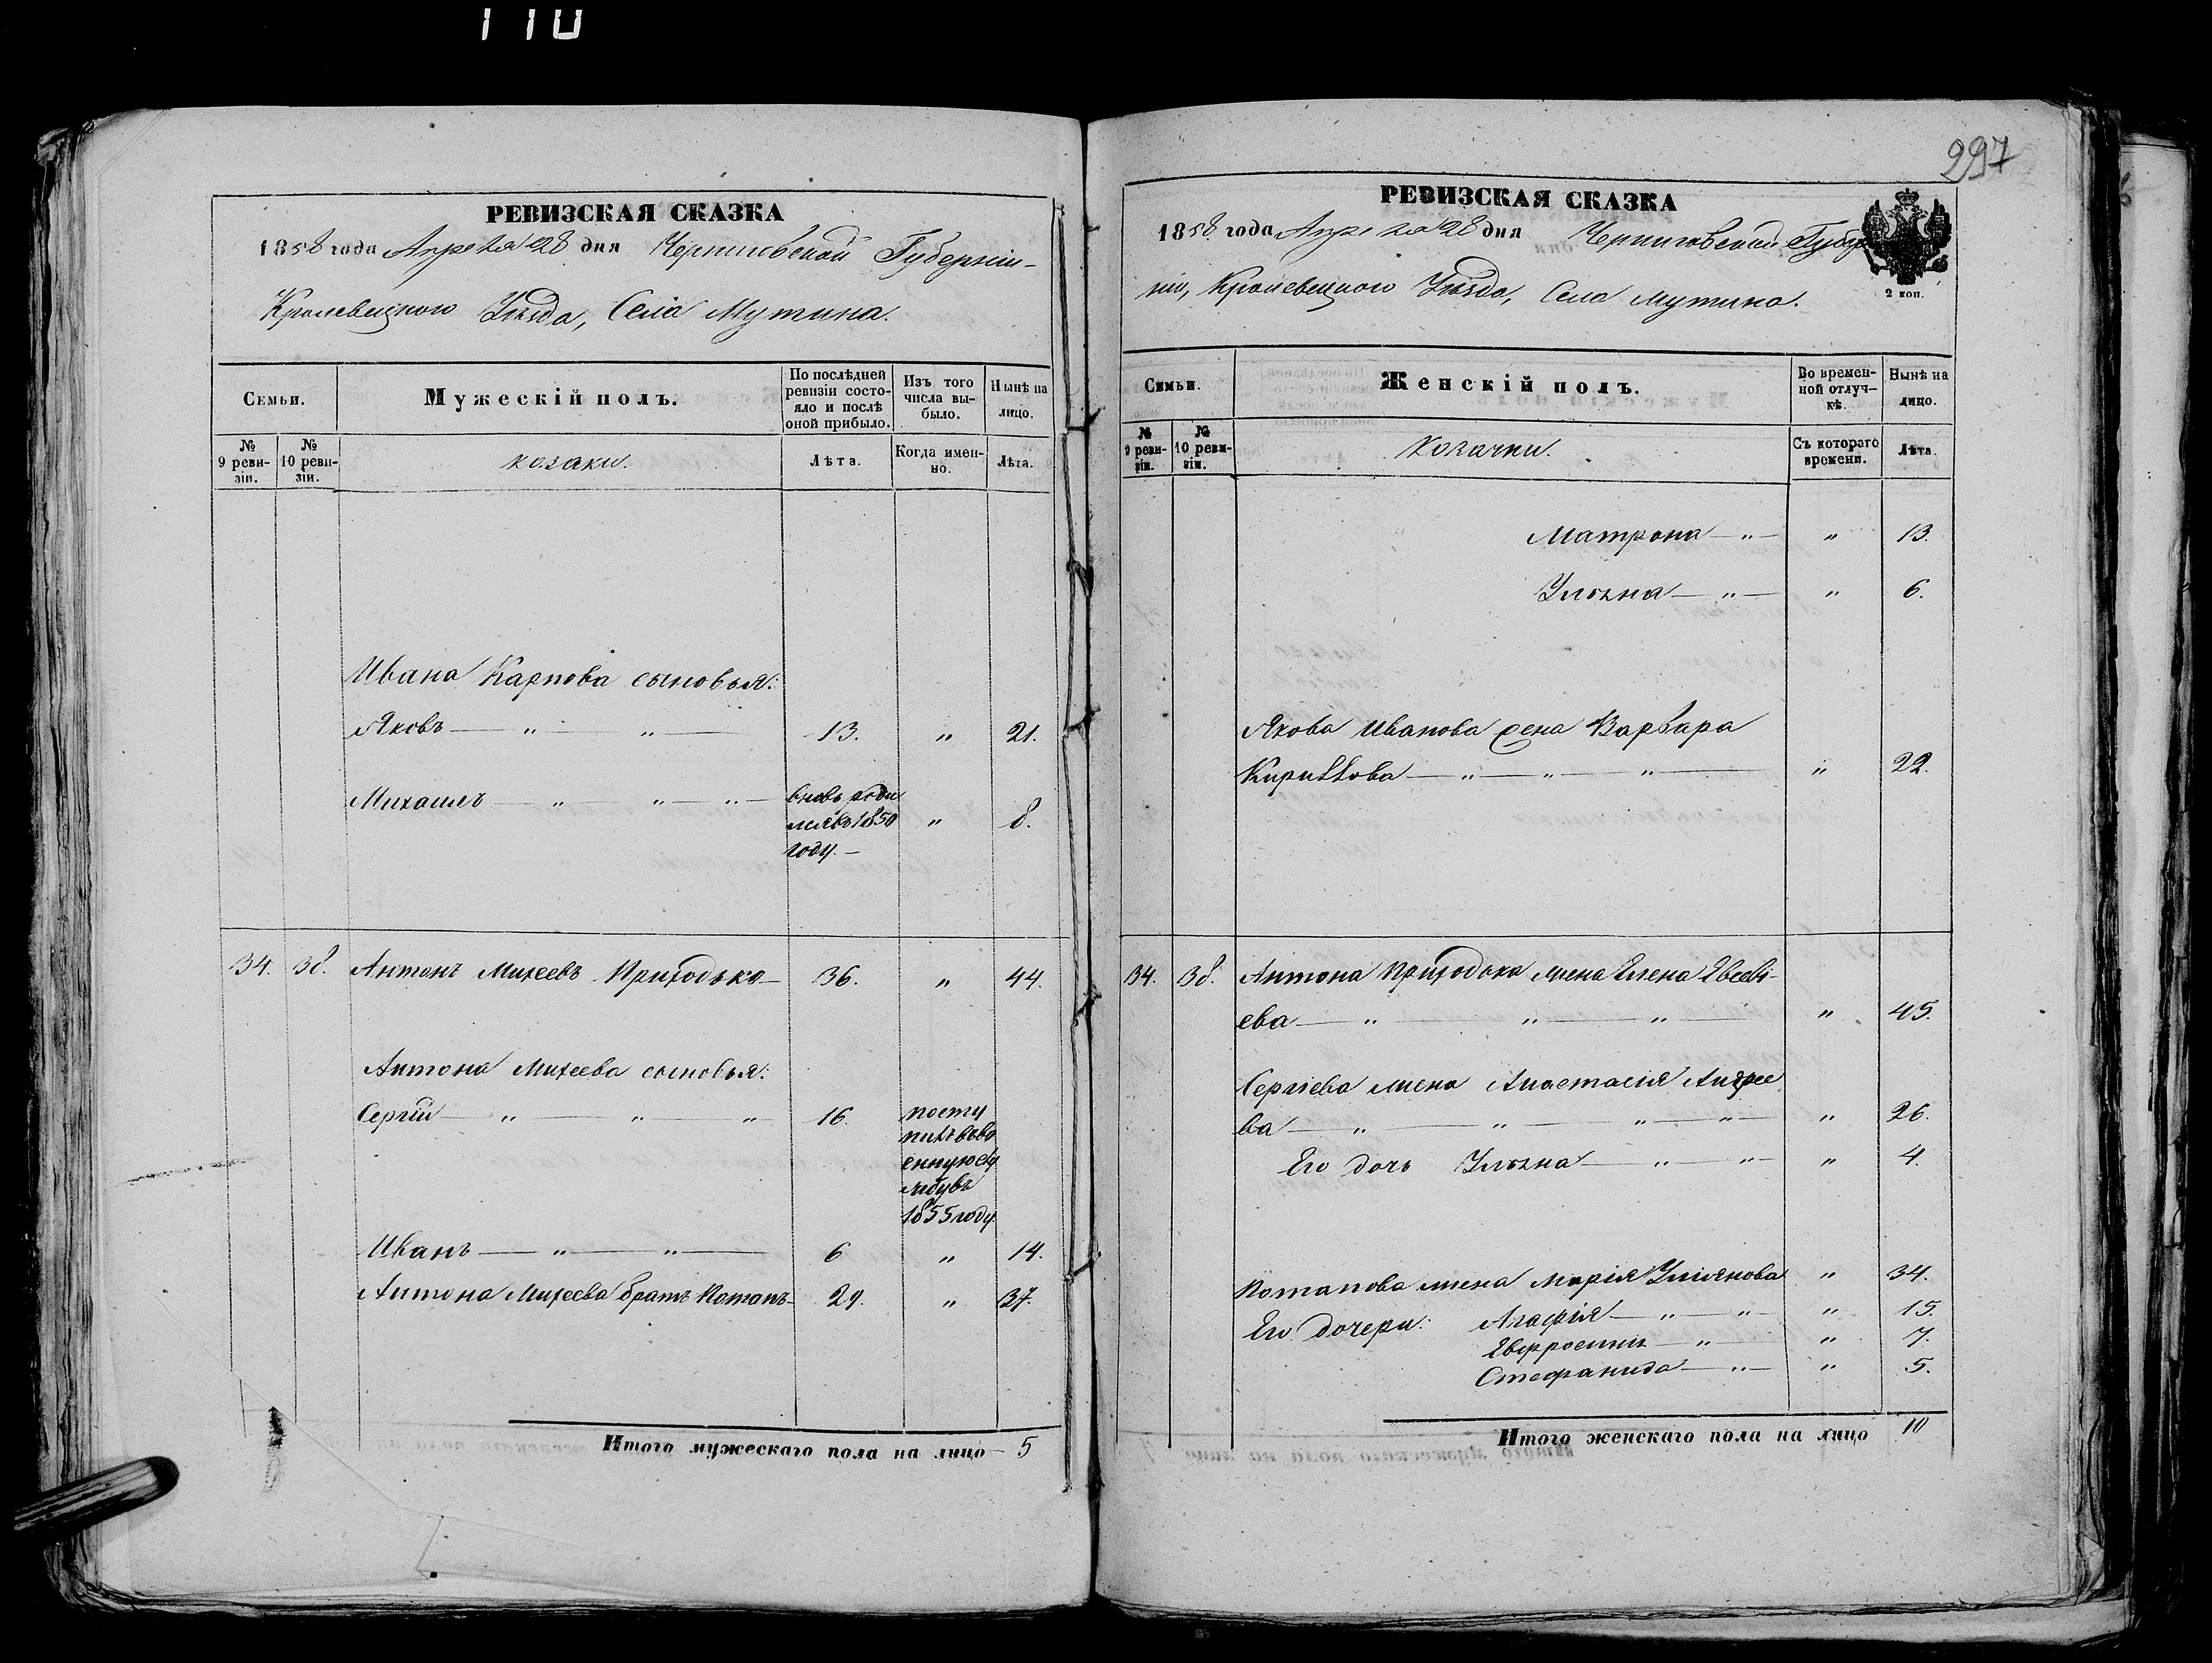 110
РЕВИЗСКАЯ СКАЗКА
1858 года Апреля 28 дня Черниговской Губерніи
Кролевецкого Уѣзда, Села Мутина.
Семьи.
Мужескій полъ.
По послѣдней ревизіи состояло и послѣ оной прибыло.
Изъ того числа выбыло.
Нынѣ на лицо.
№ 9 ревизіи.
№ 10 ревизіи.
козаки.
Лѣта.
Когда именно.
Лѣта.
Ивана Карпова сыновья:
Яковъ — „ — „ — 13. „ 21.
Михаилъ — „ — „ — „ — вновь роди
лся въ 1850 „ 8.
году. —
34. 38. Антонъ Михеевъ Приходько — 36. „ 44.
Антона Михеева сыновья:
Сергій — „ — „ — „ 16. посту
пилъ въ во
енную слу
жбу въ
1855 году
Иванъ — „ — „ — 6 „ 14.
Антона Михеева братъ Потапъ — 29. „ 37.
Итого мужескаго пола на лицо — 5
297
РЕВИЗСКАЯ СКАЗКА
1858 года Апреля 28 дня Черниговской Губер
ніи, Кролевецкого Уѣзда, Села Мутина.
2 коп.
Семьи.
Женскій полъ.
Во временной отлучкѣ.
Нынѣ на лицо.
№ 9 ревизіи.
№ 10 ревизіи.
козачки.
Съ котораго времени.
Лѣта.
Матрона — „ — „ 13.
Ульяна — „ — „ 6.
Якова Иванова жена Варвара
Кириллова — „ — „ — „ — „ 22.
34. 38. Антона Приходька жена Елена Евсеві-
ева — „ — „ — „ — „ 45.
Сергіева жена Анастасія Андрее
ва — „ — „ — „ — „ — „ 26.
Его дочь Ульяна — „ — „ — „ 4.
Потапова жена Марія Ульянова „ 34.
Его дочери: Агафія — „ — „ — „ 15.
Евфросинія — „ — „ 7.
Стефанида — „ — „ 5.
Итого женскаго пола на лицо 10